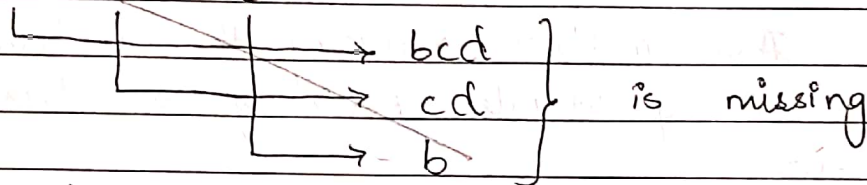 bcd
cd is missing
b